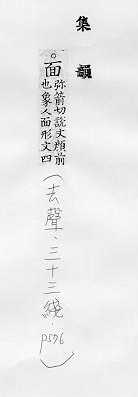 集韻
。面
弥箭切說文顔前
也象人面形文四
(去聲、三十三綫. P576)